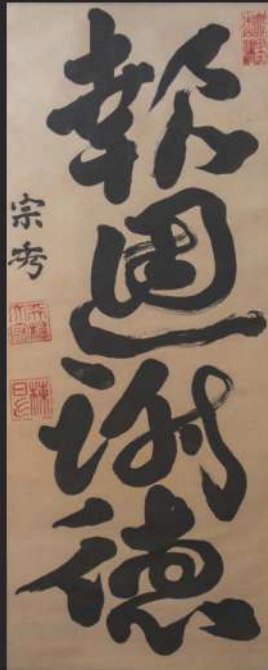 報恩謝徳
宗秀